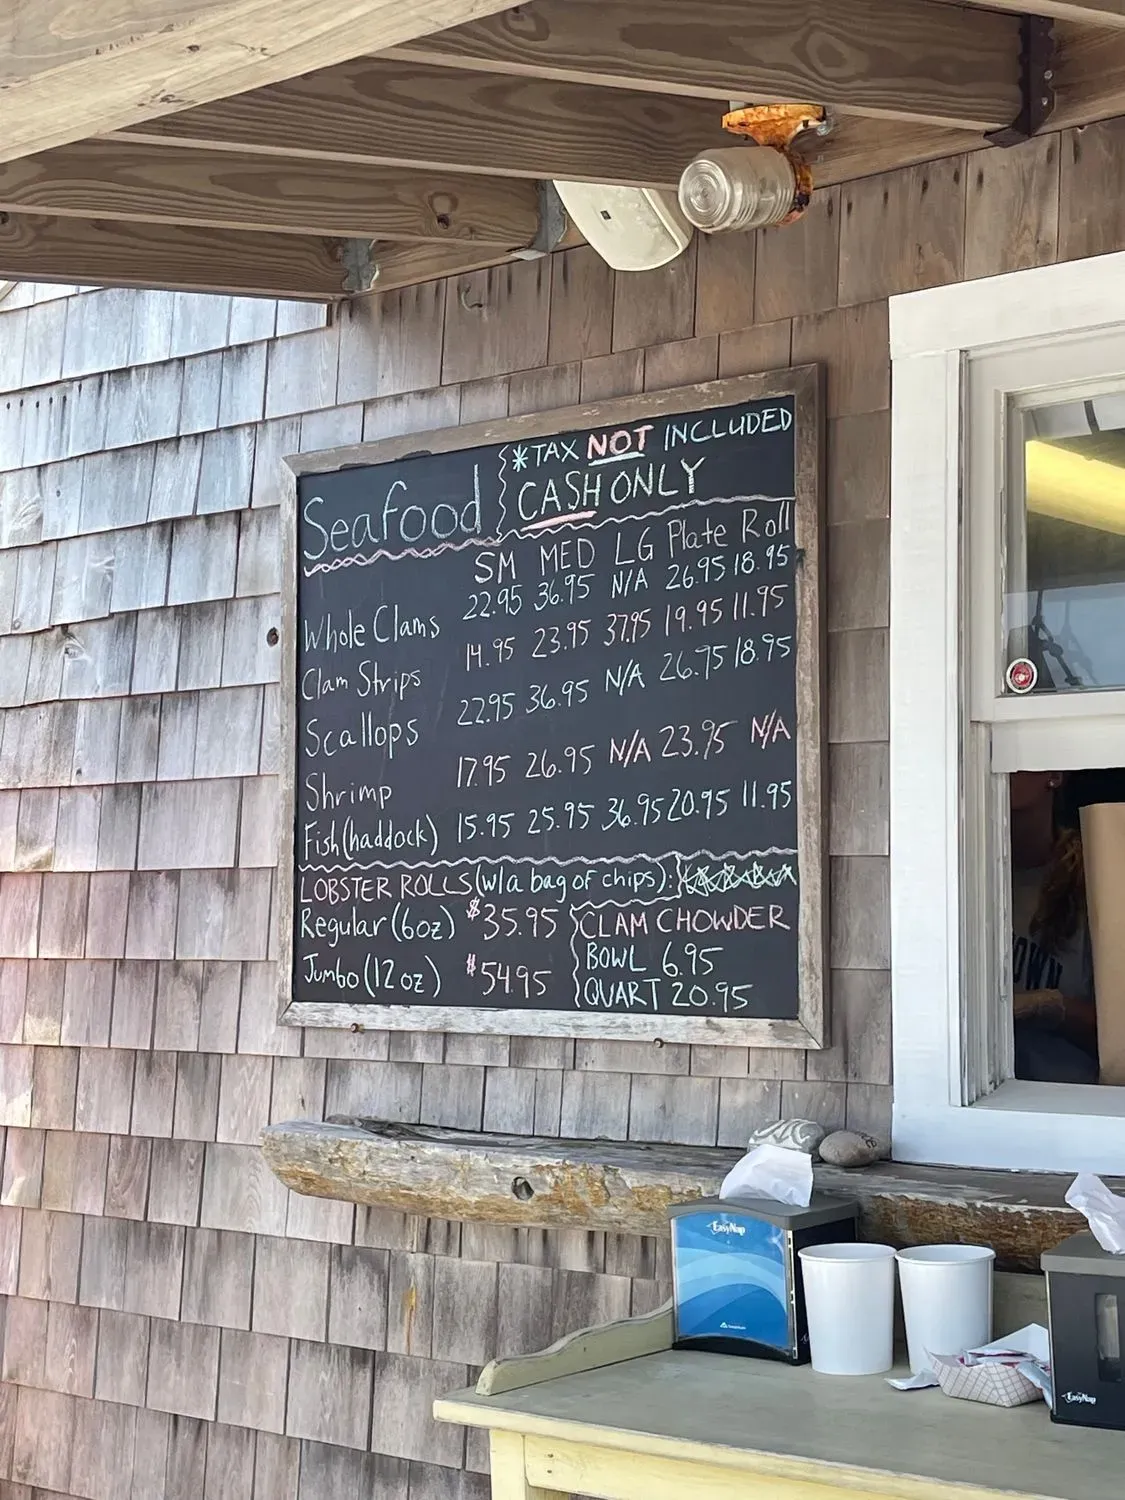 Seafood
*TAX NOT INCLUDED
CASH ONLY
SM MED LG Plate Roll
Whole Clams 22.95 36.95 N/A 26.95 18.95
Clam Strips 14.95 23.95 37.95 19.95 11.95
Scallops 22.95 36.95 N/A 26.95 18.95
Shrimp 17.95 26.95 N/A 23.95 N/A
Fish (haddock) 15.95 25.95 36.95 20.95 11.95
LOBSTER ROLLS (w/a bag of chips):
Regular (6oz) $35.95
Jumbo (12 oz) $54.95
CLAM CHOWDER
BOWL 6.95
QUART 20.95
EasyNap
EasyNap